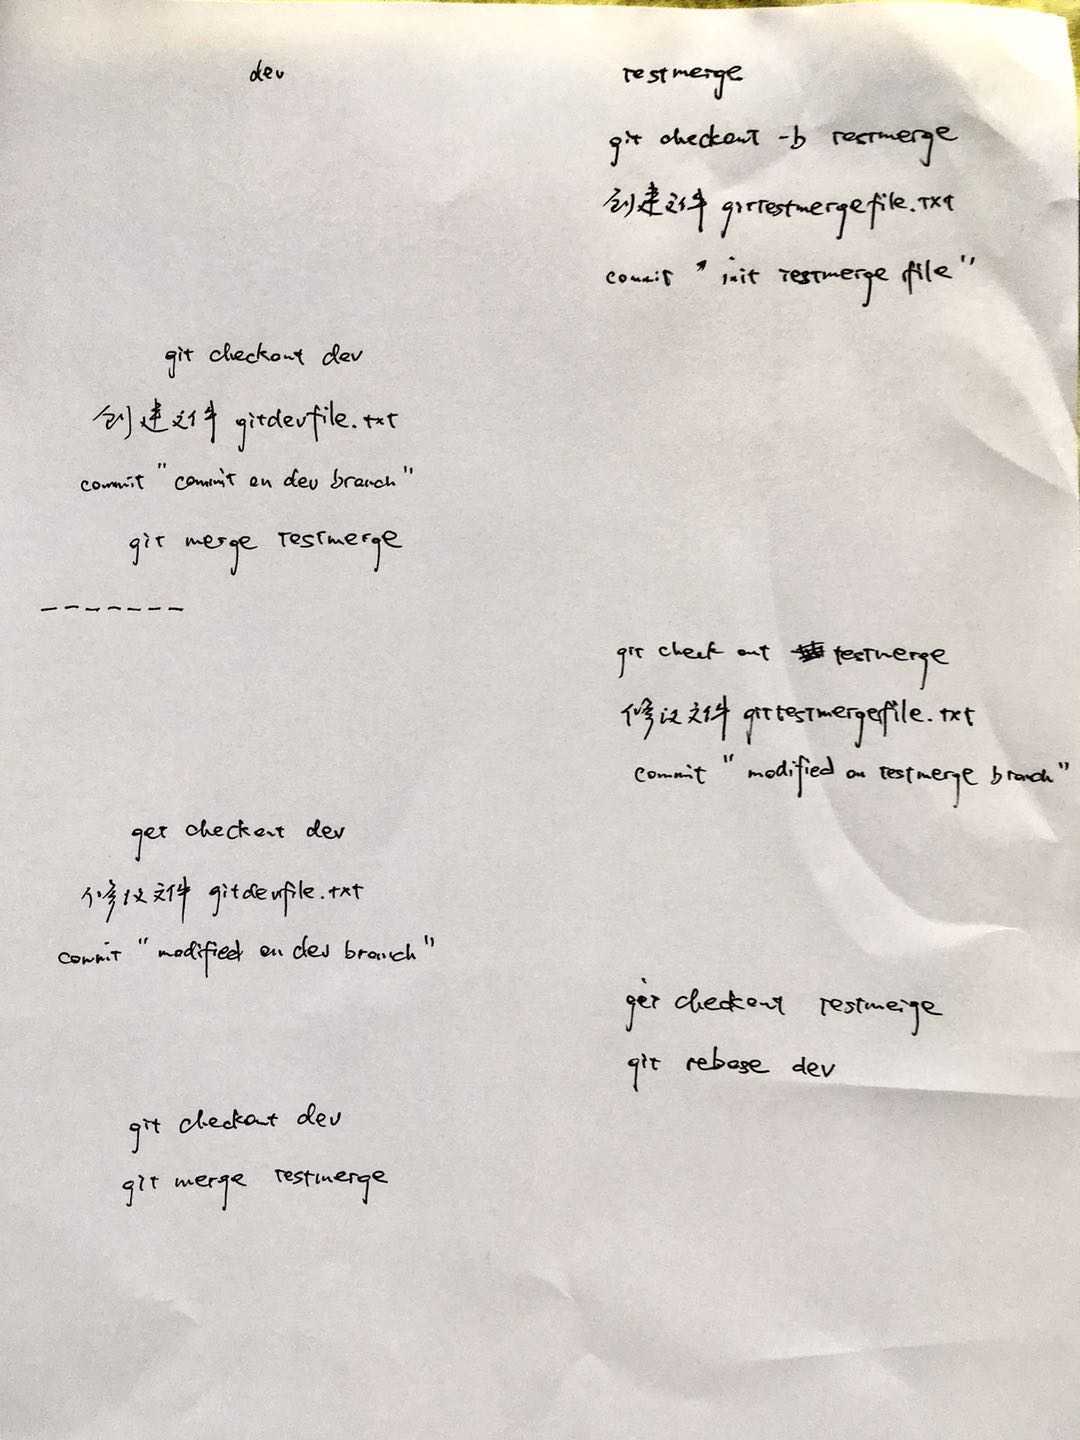 dev
testmerge
git checkout -b testmerge
创建文件 gittestmergefile.txt
commit "init testmerge file"
git checkout dev
创建文件 gitdevfile.txt
commit "commit on dev branch"
git merge testmerge
-------
git check out testmerge
修改文件 gittestmergefile.txt
commit "modified on testmerge branch"
get checkout dev
修改文件 gitdevfile.txt
commit "modified on dev branch"
get checkout testmerge
git rebase dev
git checkout dev
git merge testmerge